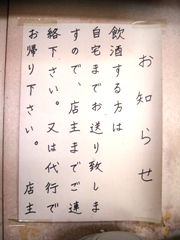 お知らせ
飲酒する方は
自宅までお送り致しま
すので、店主までご連
絡下さい。又は代行で
お帰り下さい。
店主